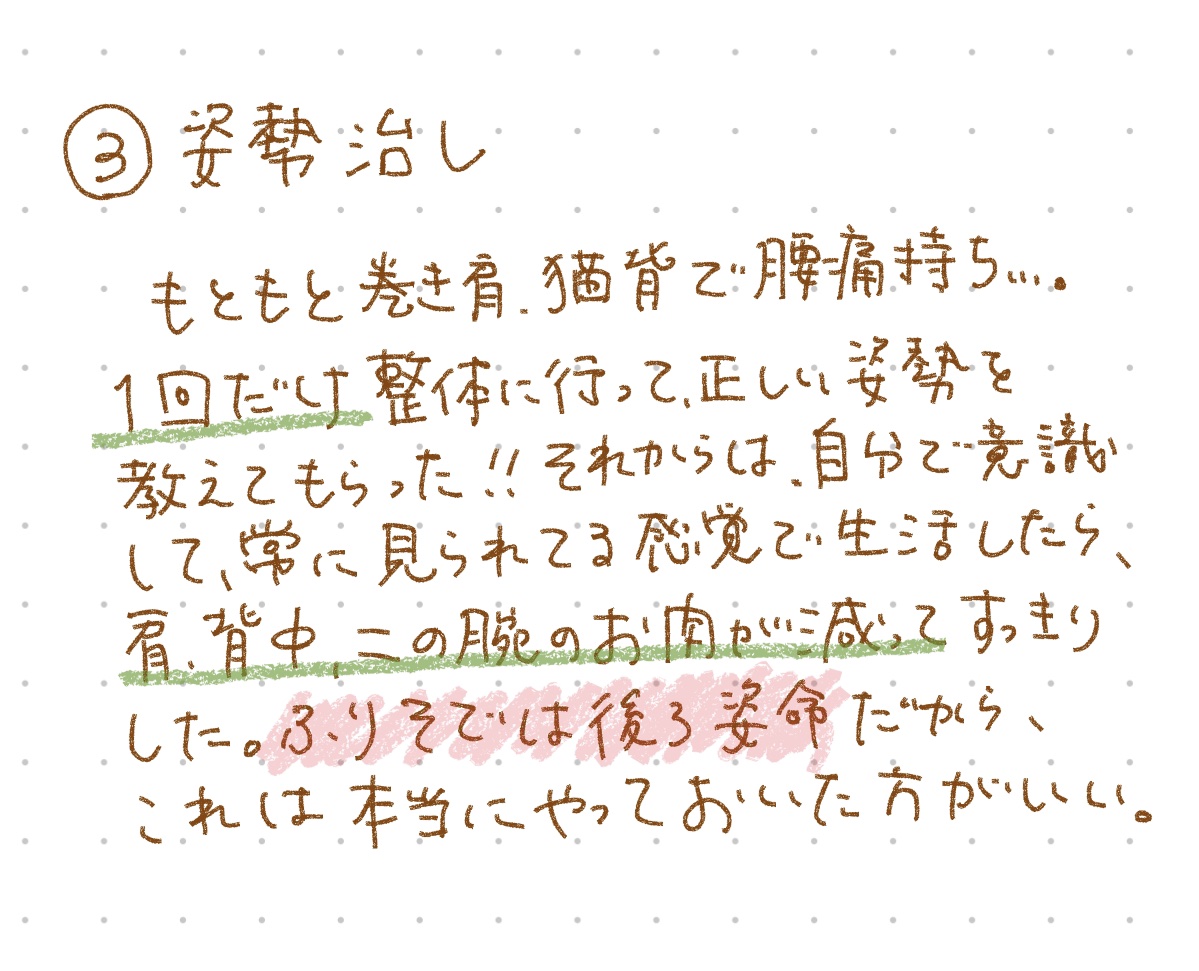 ③ 姿勢治し
もともと巻き肩、猫背で腰痛持ち…。
1回だけ整体に行って、正しい姿勢を
教えてもらった!! それからは、自分で意識
して、常に見られてる感覚で生活したら、
肩、背中、二の腕のお肉が減ってすっきり
した。ふりそでは後ろ姿命だから、
これは本当にやっておいた方がいい。